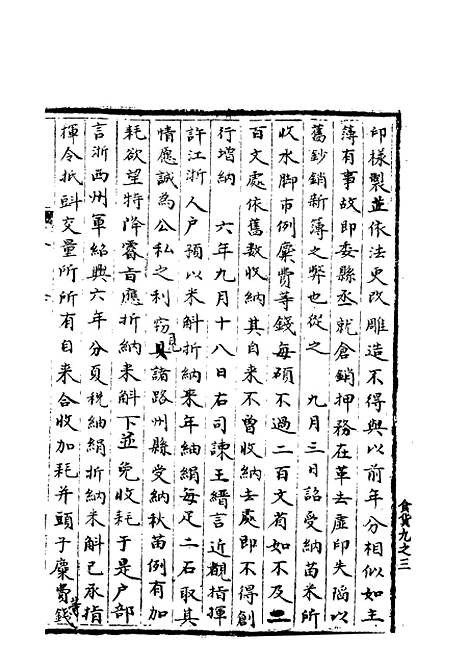 食貨九之三
印樣製並依法更改雕造不得與以前年分相似如主
薄有事故即委縣丞就倉銷押務在革去虛印失陷以
舊鈔銷新簿之弊也從之　九月三日詔受納苗米所
收水脚市例糜費等錢每碩不過二百文荀如不及二
百文處依舊數收納其自來不曾收納去處即不得創
行增納　六年九月十八日右司諫王縉言近觀指揮
許江浙人户預以米斛折納來年紬絹每疋二石取其
情愿誠為公私之利竊見諸路州縣受納秋苗例有加
耗欲望特降睿旨應折納米斛下並免收耗于是户部
言浙西州軍紹興六年分頁稅納絹折納米斛已承指
揮令抵斗交量所所有自来合收加耗并頭子糜費錢等